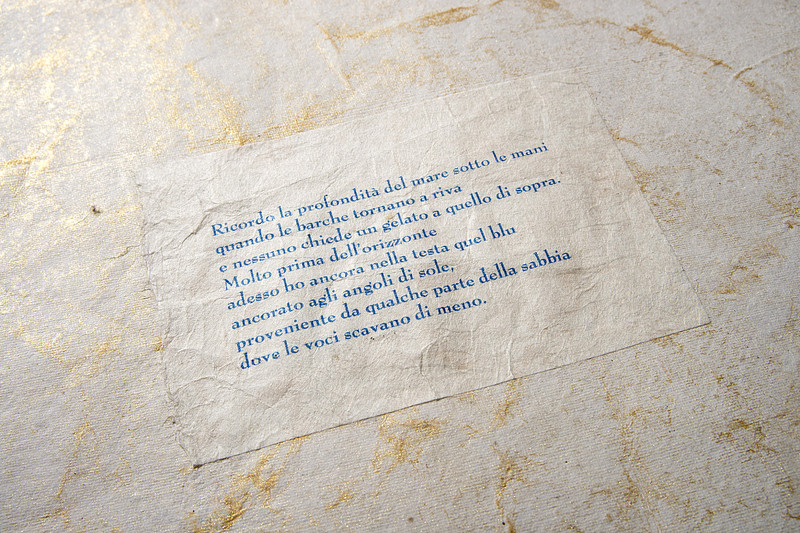 Ricordo la profondità del mare sotto le mani
quando le barche tornano a riva
e nessuno chiede un gelato a quello di sopra.
Molto prima dell'orizzonte
adesso ho ancora nella testa quel blu
ancorato agli angoli di sole,
proveniente da qualche parte della sabbia
dove le voci scavano di meno.